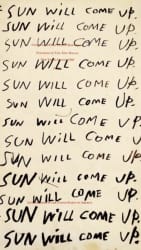 SUN WILL COME UP.
SUN WILL COME UP.
SUN WILL COME UP.
SUN WILL COME UP.
SUN WILL COME UP.
SUN WILL COME UP.
SUN WILL COME UP.
SUN WILL COME UP.
SUN WILL COME UP.
SUN WILL COME UP.
SUN WILL COME UP.
SUN WILL COME UP.
SUN WILL COME UP.